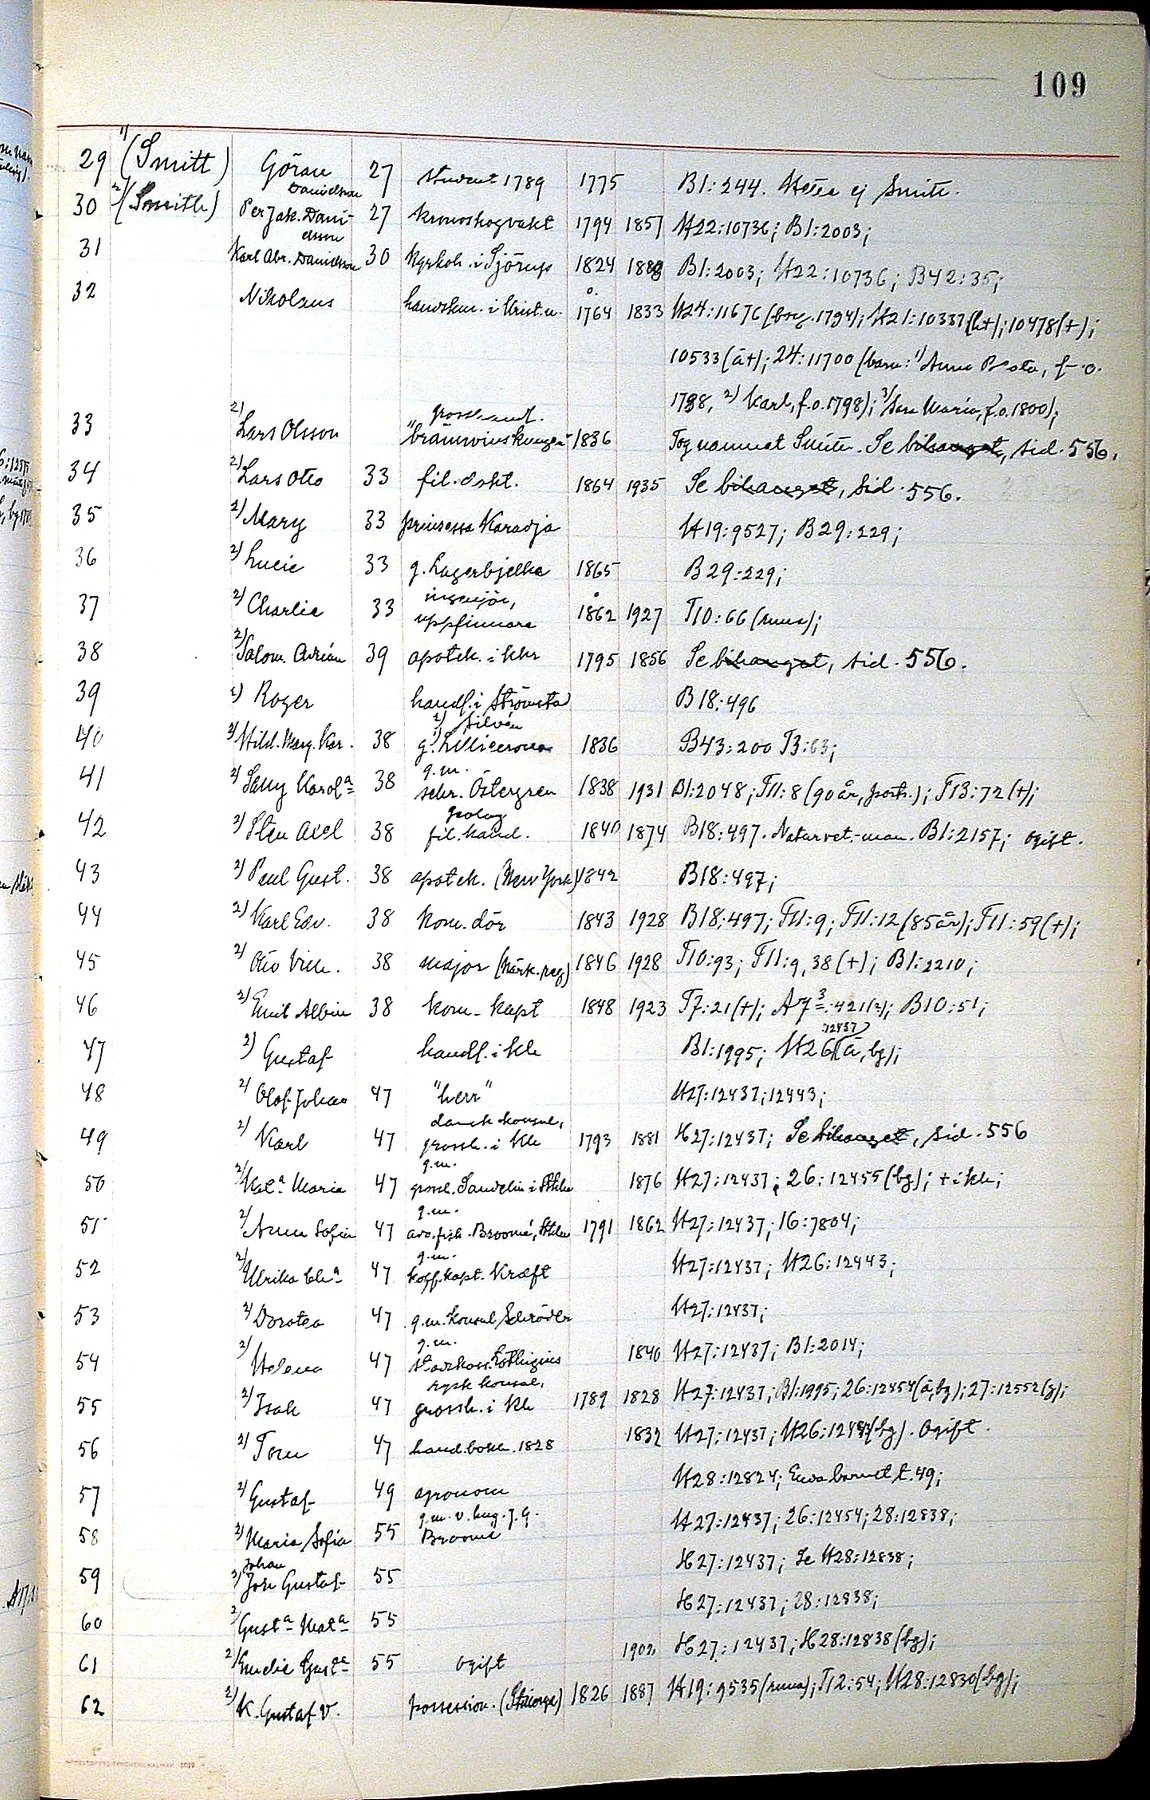 109
29 1) (Smitt) Göran Danielsson 27 student 1789 1775 B1:244. Hette ej Smith.
30 2) (Smith) Per Jak. Danielsson 27 kronoskogvakt 1794 1857 H22:10736; B1:2003;
31 Karl Abr. Danielsson 30 kyrkoh. i Sjörup 1824 1889 B1:2003; H22:10736; B42:35;
32 Nikolaus handskm. i Krist.n. 1764 1833 H24:11676 (borg. 1794); H21:10337 (h+); 10478 (+);
10533 (ä+); 24:11700 (barn: 1) Anna Beata, f. o.
1798, 2) Karl, f.o. 1798); 3) Maria, f.o. 1800);
33 2) Lars Olsson "brännvinskungen" 1836 Tog namnet Smith. Se bihanget, sid. 556.
34 2) Lars Otto 33 fil. dokt. 1864 1935 Se bihanget, sid. 556.
35 2) Mary 33 prinsessa Karadja H19:9527; B29:229;
36 2) Lucie 33 g. Lagerbjelke 1865 B29:229;
37 2) Charlie 33 ingenjör, uppfinnare 1862 1927 T10:66 (runa);
38 2) Salom. Adrian 39 apotek. i khr 1795 1856 Se bihanget, sid. 556.
39 2) Roger handl. i Strömsta B18:496
40 2) Hild. Marg. Kar. 38 g. 1) Lilliecrona 2) Silvén 1836 B43:200 T3:63;
41 2) Sally Karola 38 g.m. sekr. Östergren 1838 1931 B1:2048; T11:8 (90 år, portr.); T13:72 (+);
42 2) Sten Axel 38 geolog fil. kand. 1840 1874 B18:497. Naturvet.-man. B1:2157; ogift.
43 2) Paul Gust. 38 apotek. (New York) 1842 B18:497;
44 2) Karl Edv. 38 kom. dör 1843 1928 B18:497; T11:9; T11:12 (85 år); T11:59 (+);
45 2) Otto Vilh. 38 major (Närk. reg) 1846 1928 T10:93; T11:9, 38 (+); B1:2210;
46 2) Emil Albin 38 kom-kapt 1848 1923 T7:21 (+); A7 3:421 (2); B10:51;
47 2) Gustaf handl. i kh B1:1995; H26:12437 (ä, bg);
48 2) Olof Johan 47 "herr" H27:12437; 12443;
49 2) Karl 47 dansk konsul, grossh. i kh 1793 1881 H27:12437; Se bihanget, sid. 556
50 2) Kata Maria 47 g.m. grossh. Sandelin i Sthlm 1876 H27:12437; 26:12455 (bg); + i kh;
51 2) Anna Sofia 47 g.m. adv. fisk. Broomé, Sthlm 1791 1862 H27:12437; 16:7804;
52 2) Ulrika Cha 47 g.m. koff. kapt. Kraeft H27:12437; H26:12443;
53 2) Dorotea 47 g.m. konsul Schröder H27:12437;
54 2) Helena 47 g.m. stadskass. Lothigius 1840 H27:12437; B1:2014;
55 2) Isak 47 rysk konsul, grossh. i kh 1789 1828 H27:12437; B1:1995; 26:12454 (ä, bg); 27:12552 (g);
56 2) Tom 47 hand. bokh. 1828 1832 H27:12437; H26:12454 (bg). Ogift.
57 2) Gustaf 49 agronom H28:12824; Enda barnet t. 49;
58 2) Maria Sofia 55 g.m. v. hug. J. G. Broomé H27:12437; 26:12454; 28:12838;
59 2) Johan Gustaf 55 H27:12437; Se H28:12838;
60 2) Gusta Mata 55 H27:12437; 28:12838;
61 2) Emelie Gusta 55 ogift 1902 H27:12437; H28:12838 (bg);
62 2) K. Gustaf V. possession. (Skeinge) 1826 1887 H19:9535 (runa); T12:54; H28:12830 (bg);